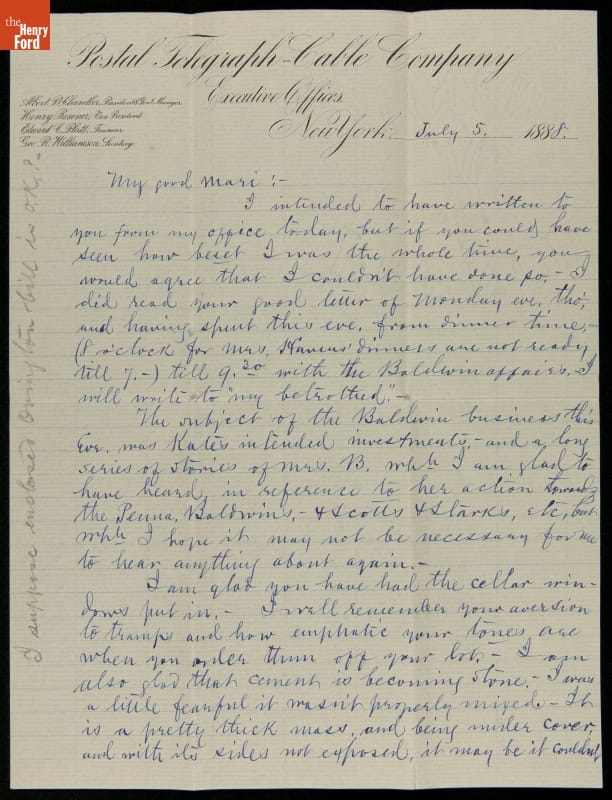 the
Henry
Ford
Postal Telegraph-Cable Company
Executive Offices.
Albert B. Chandler, President & Genl. Manager.
Henry Rosener, Vice President.
Edward C. Platt, Treasurer.
Geo. R. Williamson, Secretary.
New York, July 5. 1888.
My good Mari :-
I intended to have written to
you from my office today, but if you could have
seen how beset I was the whole time, you
would agree that I couldn't have done so,- I
did read your good letter of Monday eve, tho',
and having spent this eve. from dinner time,-
(8 o'clock for Mrs. Havens' dinners are not ready
till 7.-) till 9.30 with the Baldwin affairs, I
will write to "my betrothed".-
The subject of the Baldwin business this
Eve. was Kate's intended investments,- and a long
series of stories of Mrs. B. whh I am glad to
have heard, in reference to her action towards
the Penna. Baldwins,- & Scotts & Starks, etc, but
whh I hope it may not be necessary for me
to hear anything about again.-
I am glad you have had the cellar win-
dows put in.- I well remember your aversion
to tramps and how emphatic your tones are
when you order them off your lot.- I am
also glad that cement is becoming stone.- I was
a little fearful it wasn't properly mixed - It
is a pretty thick mass, and being under cover,
and with its sides not exposed, it may be it couldn't
I suppose enclosed Ovington bill is O.K.?-